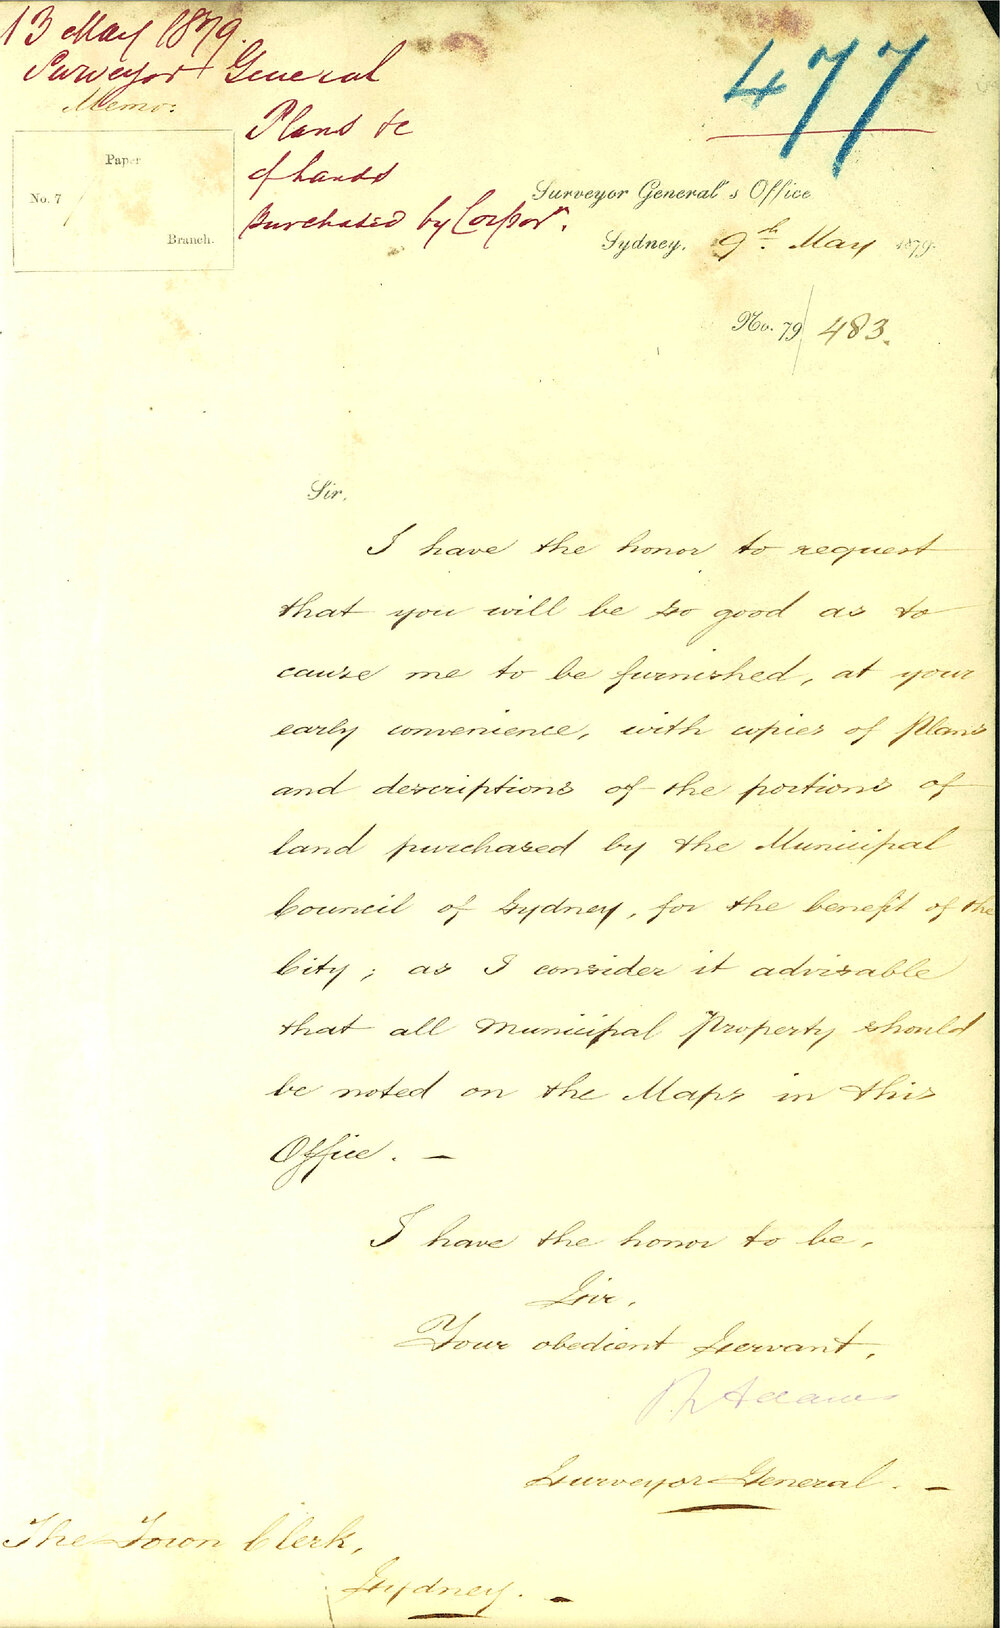 13 May 1879.
Surveyor General
Memo:
Plans &c
of Lands
purchased by Corporn.
477
Paper
No. 7
Branch.
Surveyor General's Office
Sydney, 9th May 1879.
No. 79/483.
Sir,
I have the honor to request
that you will be so good as to
cause me to be furnished, at your
early convenience, with copies of Plans
and descriptions of the portions of
land purchased by the Municipal
Council of Sydney, for the benefit of the
City; as I consider it advisable
that all Municipal Property should
be noted on the Maps in this
Office. —
I have the honor to be,
Sir,
Your obedient Servant,
Adams
Surveyor General. —
The Town Clerk,
Sydney. —